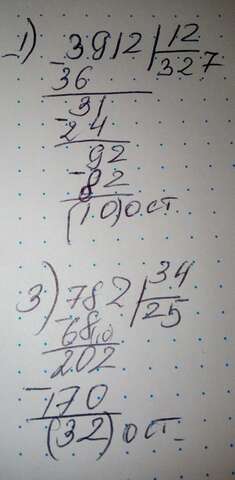 1) 3912 | 12
- 36 | 327
31
- 24
92
- 82
(10) ост
3) 782 | 34
- 680 | 25
202
- 170
(32) ост